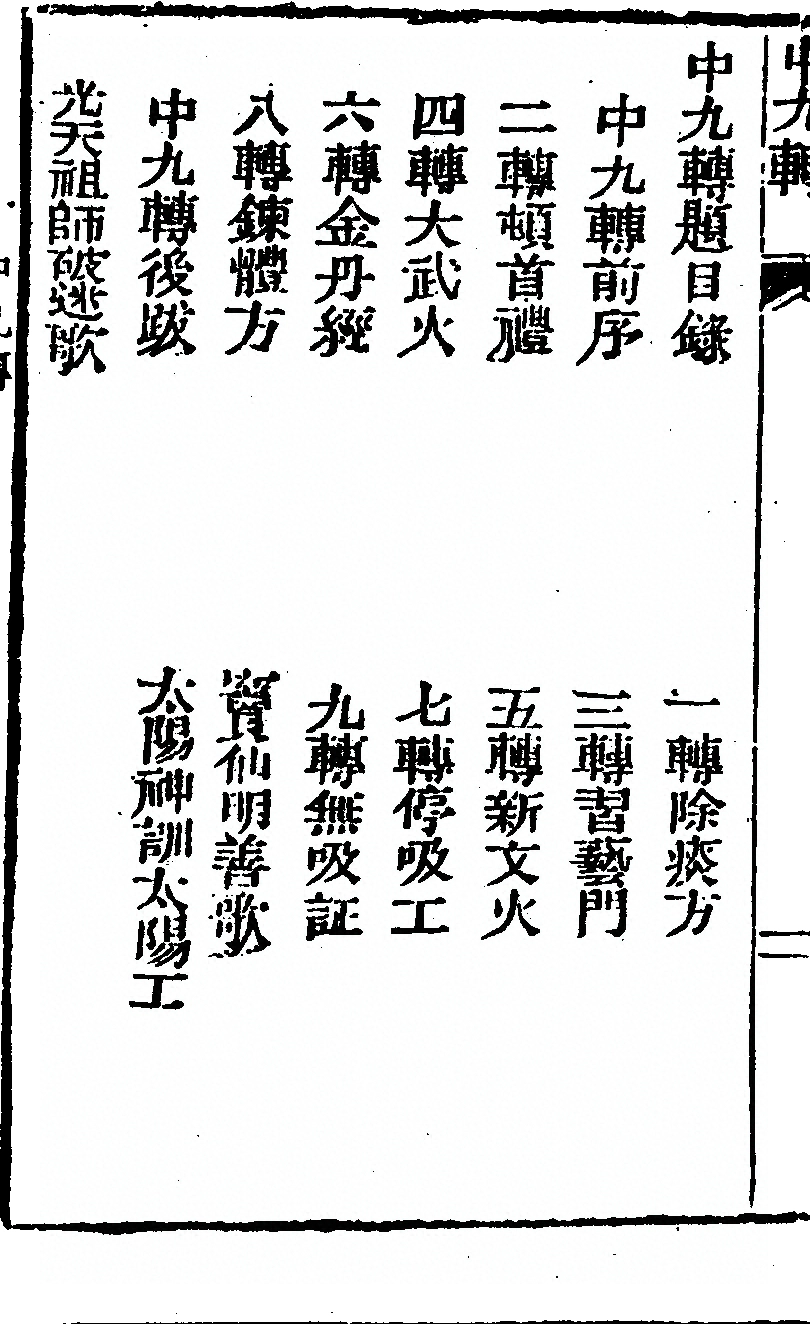 中九轉
中九轉題目錄
中九轉前序
一轉除痰方
二轉頓首禮
三轉習藝門
四轉大武火
五轉新文火
六轉金丹經
七轉停吸工
八轉鍊體方
九轉無吸証
中九轉後跋
仙明善歌
光天祖師破迷歌
太陽神訓太陽工